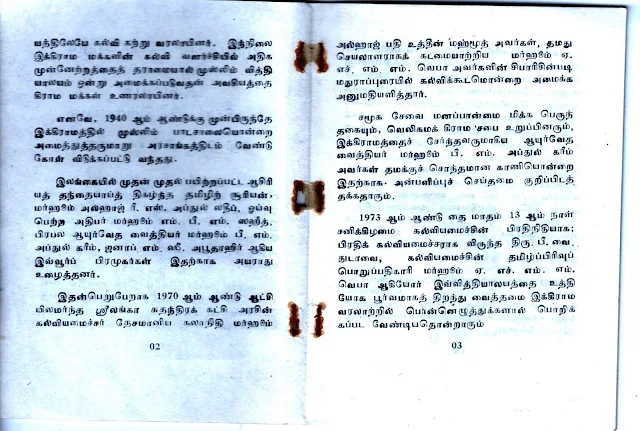 யத்திலேயே கல்வி கற்று வரலாயினர். இந்நிலை
இக்கிராம மக்களின் கல்வி வளர்ச்சியில் அதிக
முன்னேற்றத்தைத் தராமையால் முஸ்லிம் வித்தி
யாலயம் ஒன்று அமைக்கப்படுவதன் அவசியத்தை
கிராம மக்கள் உணரலாயினர்.
எனவே, 1940 ஆம் ஆண்டுக்கு முன்பிருந்தே
இக்கிராமத்தில் முஸ்லிம் பாடசாலையொன்றை
அமைத்துத்தருமாறு அரசாங்கத்திடம் வேண்டு
கோள் விடுக்கப்பட்டு வந்தது.
இலங்கையில் முதன் முதல் பயிற்றப்பட்ட ஆசிரி
யத் தந்தையாய்த் திகழ்ந்த தமிழிற் சூரியன்,
மர்ஹூம் அல்ஹாஜ் ரீ. எஸ். அப்துல் லதீப், ஓய்வு
பெற்ற அதிபர் மர்ஹூம் எம். பீ. எம். ஸஹீத்,
பிரபல ஆயுர்வேத வைத்தியர் மர்ஹூம் பீ. எம்.
அப்துல் கரீம், ஜனாப் எம். ஸீ. அபூதாஹிர் ஆகிய
இவ்வூர்ப் பிரமுகர்கள் இதற்காக அயராது
உழைத்தனர்.
இதன்பெறுபேறாக 1970 ஆம் ஆண்டு ஆட்சி
யிலமர்ந்த ஸ்ரீலங்கா சுதந்திரக் கட்சி அரசின்
கல்வியமைச்சர் தேசமானிய கலாநிதி மர்ஹூம்
02
அல்ஹாஜ் பதி உத்தீன் மஹ்மூத் அவர்கள், தமது
செயலாளராகக் கடமையாற்றிய மர்ஹூம் ஏ.
எச். எம். எம். வெபா அவர்களின் சிபாரிசின்படி
மதுராப்புரையில் கல்விக்கூடமொன்றை அமைக்க
அனுமதியளித்தார்.
சமூக சேவை மனப்பான்மை மிக்க பெருந்
தகையும், வெலிகமக் கிராம சபை உறுப்பினரும்,
இக்கிராமத்தைச் சேர்ந்தவருமாகிய ஆயுர்வேத
வைத்தியர் மர்ஹூம் பீ. எம். அப்துல் கரீம்
அவர்கள் தமக்குச் சொந்தமான காணியொன்றை
இதற்காக அன்பளிப்புச் செய்தமை குறிப்பிடத்
தக்கதாகும்.
1973 ஆம் ஆண்டு தை மாதம் 13 ஆம் நாள்
சனிக்கிழமை கல்வியமைச்சின் பிரதிநிதியாக;
பிரதிக் கல்வியமைச்சராக விருந்த திரு. பீ. வை.
துடாவை, கல்வியமைச்சின் தமிழ்ப்பிரிவுப்
பொறுப்பதிகாரி மர்ஹூம் ஏ. எச். எம். எம்.
வெபா ஆகியோர் இவ்வித்தியாலயத்தை உத்தி
யோக பூர்வமாகத் திறந்து வைத்தமை இக்கிராம
வரலாற்றில் பொன்னெழுத்துக்களால் பொறிக்
கப்பட வேண்டியதொன்றாகும்
03